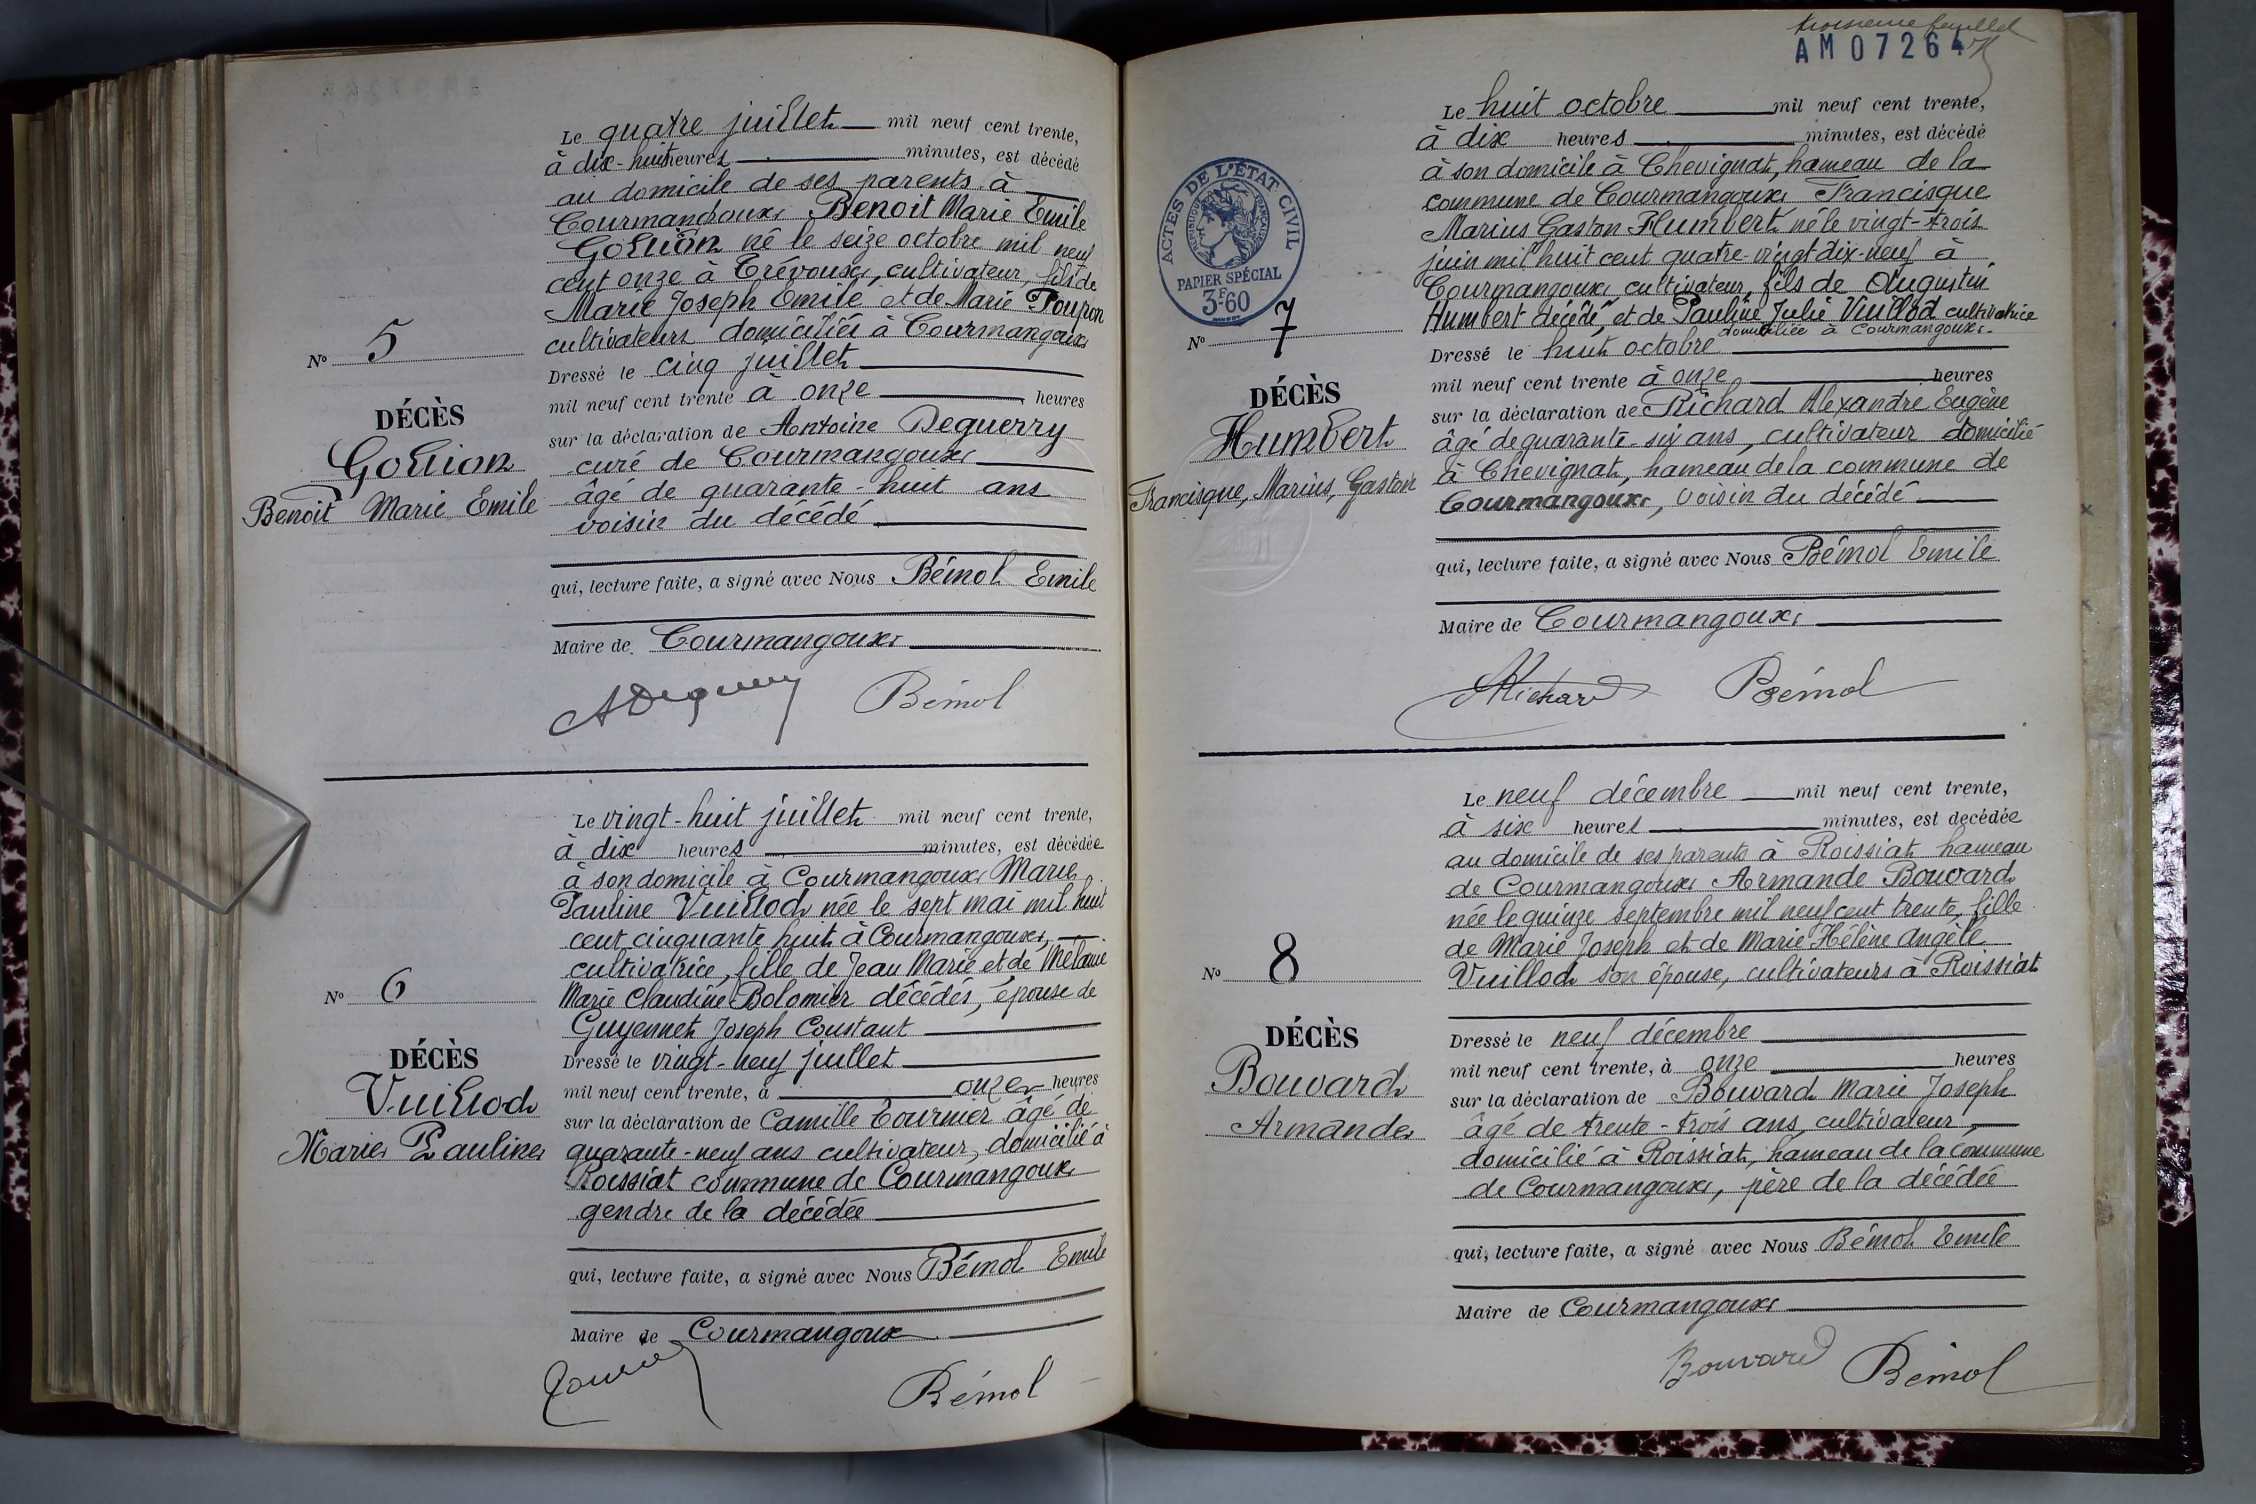 Le quatre juillet mil neuf cent trente,
à dix-huit heures minutes, est décédé
au domicile de ses parents à
Courmangoux Benoit Marie Emile
Gollion né le seize octobre mil neuf
cent onze à Trévoux, cultivateur, fils de
Marie Joseph Emile et de Marie Poupon
cultivateurs domiciliés à Courmangoux
No 5
Dressé le cinq juillet
mil neuf cent trente à onze heures
DÉCÈS
sur la déclaration de Antoine Deguerry
Gollion
curé de Courmangoux
Benoit Marie Emile
âgé de quarante-huit ans
voisin du décédé
qui, lecture faite, a signé avec Nous Bémol Emile
Maire de Courmangoux
ADeguerry Bémol
Le vingt-huit juillet mil neuf cent trente,
à dix heures minutes, est décédée
à son domicile à Courmangoux Marie
Pauline Vuillod née le sept mai mil huit
cent cinquante huit à Courmangoux,
cultivatrice, fille de Jean Marie et de Mélanie
No 6
Marie Claudine Bolomier décédés, épouse de
Guyennet Joseph Constant
DÉCÈS
Dressé le vingt-neuf juillet
mil neuf cent trente, à onze heures
Vuillod
sur la déclaration de Camille Tournier âgé de
Marie Pauline
quarante-neuf ans cultivateur, domicilié à
Roissiat commune de Courmangoux
gendre de la décédée
qui, lecture faite, a signé avec Nous Bémol Emile
Maire de Courmangoux
Bémol
troisième feuillet
AM07264
Le huit octobre mil neuf cent trente,
à dix heures minutes, est décédé
à son domicile à Chevignat, hameau de la
commune de Courmangoux Francisque
Marius Gaston Humbert né le vingt-trois
juin mil huit cent quatre-vingt dix-neuf à
Courmangoux cultivateur, fils de Augustin
Humbert décédé, et de Pauline Julie Vuillod cultivatrice
domiciliée à Courmangoux.
ACTES DE L'ÉTAT CIVIL
RÉPUBLIQUE FRANÇAISE
PAPIER SPÉCIAL
3F60
No 7
Dressé le huit octobre
mil neuf cent trente à onze heures
DÉCÈS
sur la déclaration de Richard Alexandre Eugène
Humbert
âgé de quarante-six ans, cultivateur domicilié
Francisque, Marius, Gaston
à Chevignat, hameau de la commune de
Courmangoux, voisin du décédé
qui, lecture faite, a signé avec Nous Bémol Emile
Maire de Courmangoux
Richard Bémol
Le neuf décembre mil neuf cent trente,
à six heures minutes, est décédée
au domicile de ses parents à Roissiat hameau
de Courmangoux Armande Bouvard
née le quinze septembre mil neuf cent trente, fille
de Marie Joseph et de Marie Hélène Angèle
No 8
Vuillod son épouse, cultivateurs à Roissiat
DÉCÈS
Dressé le neuf décembre
mil neuf cent trente, à onze heures
Bouvard
sur la déclaration de Bouvard Marie Joseph
Armande
âgé de trente-trois ans, cultivateur,
domicilié à Roissiat, hameau de la commune
de Courmangoux, père de la décédée
qui, lecture faite, a signé avec Nous Bémol Emile
Maire de Courmangoux
Bouvard Bémol